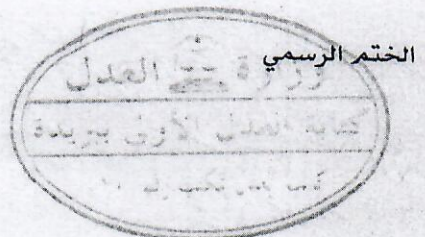 الختم الرسمي
وزارة العدل
كتابة العدل الأولى ببريدة